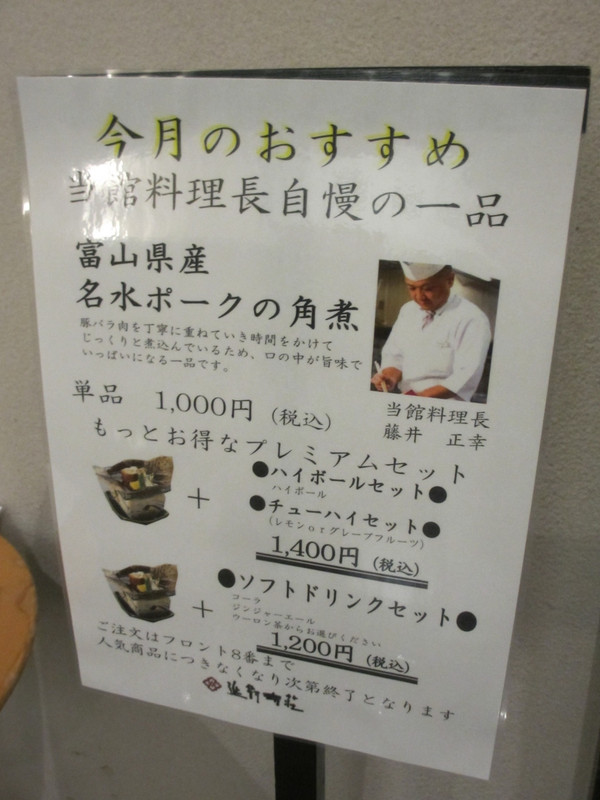 今月のおすすめ
当館料理長自慢の一品
富山県産
名水ポークの角煮
豚バラ肉を丁寧に重ねていき時間をかけて
じっくりと煮込んでいるため、口の中が旨味で
いっぱいになる一品です。
当館料理長
藤井 正幸
単品 1,000円(税込)
もっとお得なプレミアムセット
+
●ハイボールセット●
ハイボール
●チューハイセット●
(レモンorグレープフルーツ)
1,400円(税込)
+
●ソフトドリンクセット●
コーラ
ジンジャーエール
ウーロン茶からお選びください
1,200円(税込)
ご注文はフロント8番まで
人気商品につきなくなり次第終了となります